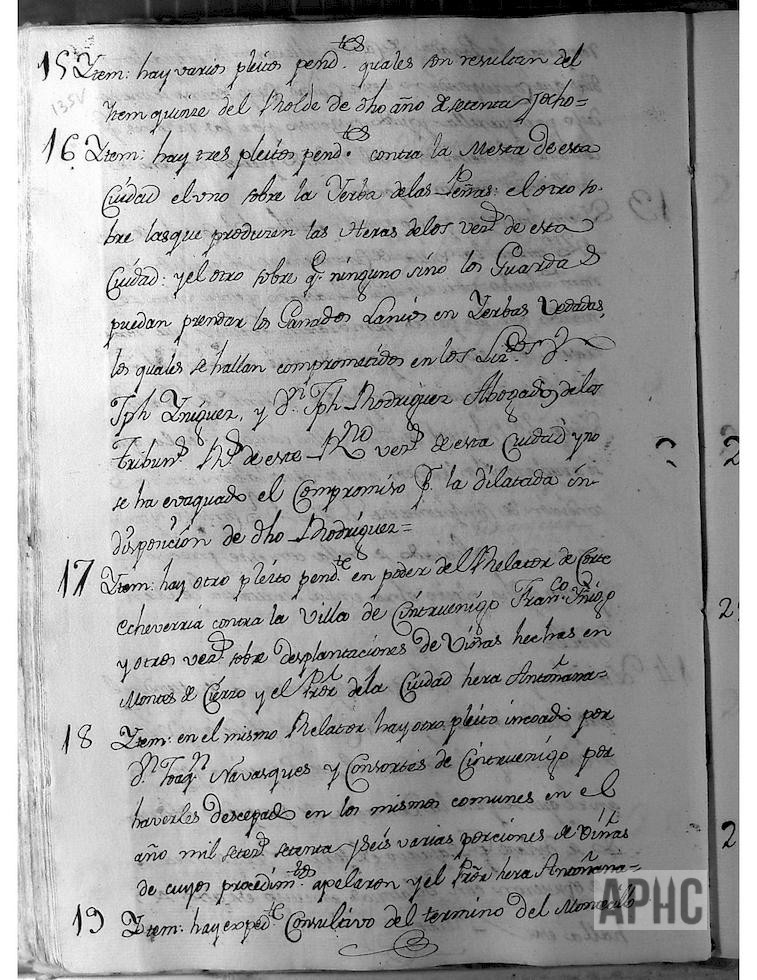 15 Ytem: hay varios pleitos pend.tes quales son resultan del
135v
Ytem quinze del Rolde de dho año de setenta y ocho=
16 Ytem: hay tres pleitos pend.tes contra la Mesta de esta
Ciudad el uno sobre la Yerba de las Peñas: el otro so-
bre las que produzen las Heras de los vez.s de esta
Ciudad: y el otro sobre q.e ninguno sino los Guardas
puedan prendar los Ganados Lanios en Yerbas Vedadas,
los quales se hallan comprometidos en los Liz.dos D.n
Jph Yñiguez, y D.n Jph Rodriguez Abogados de los
Tribun.s R.s de este R.no vez.s de esta Ciudad y no
se ha evaquado el Compromiso P. la dilatada in-
disposición de dho Rodriguez=
17 Ytem: hay otro pleito pend.te en poder del Relator de Corte
Echeverria contra la Villa de Cintruenigo Fran.co Iñigo
y otros vez.s sobre desplantaciones de Viñas hechas en
Montes de Cierzo y el Pror de la Ciudad hera Antoñana=
18 Ytem: en el mismo Relator hay otro pleito incoado por
D.n Joaq.n Navasques y Consortes de Cintruenigo por
haverles descepado en los mismos comunes en el
año mil setez.s setenta y seis varias porciones de Viñas
de cuyos procedim.tos apelaron y el Pror hera Antoñana=
19 Ytem: hay exped.te Consultivo del termino del Montecillo
APHC